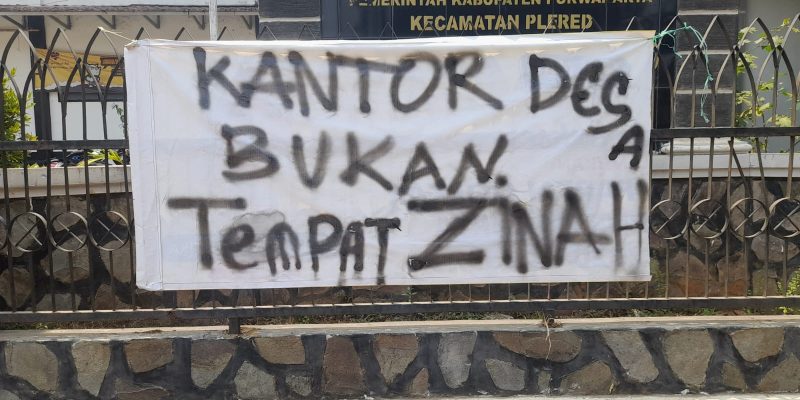 PEMERINTAH KABUPATEN PURWAKARTA
KECAMATAN PLERED
KANTOR DESA
BUKAN.
TEMPAT ZINAH